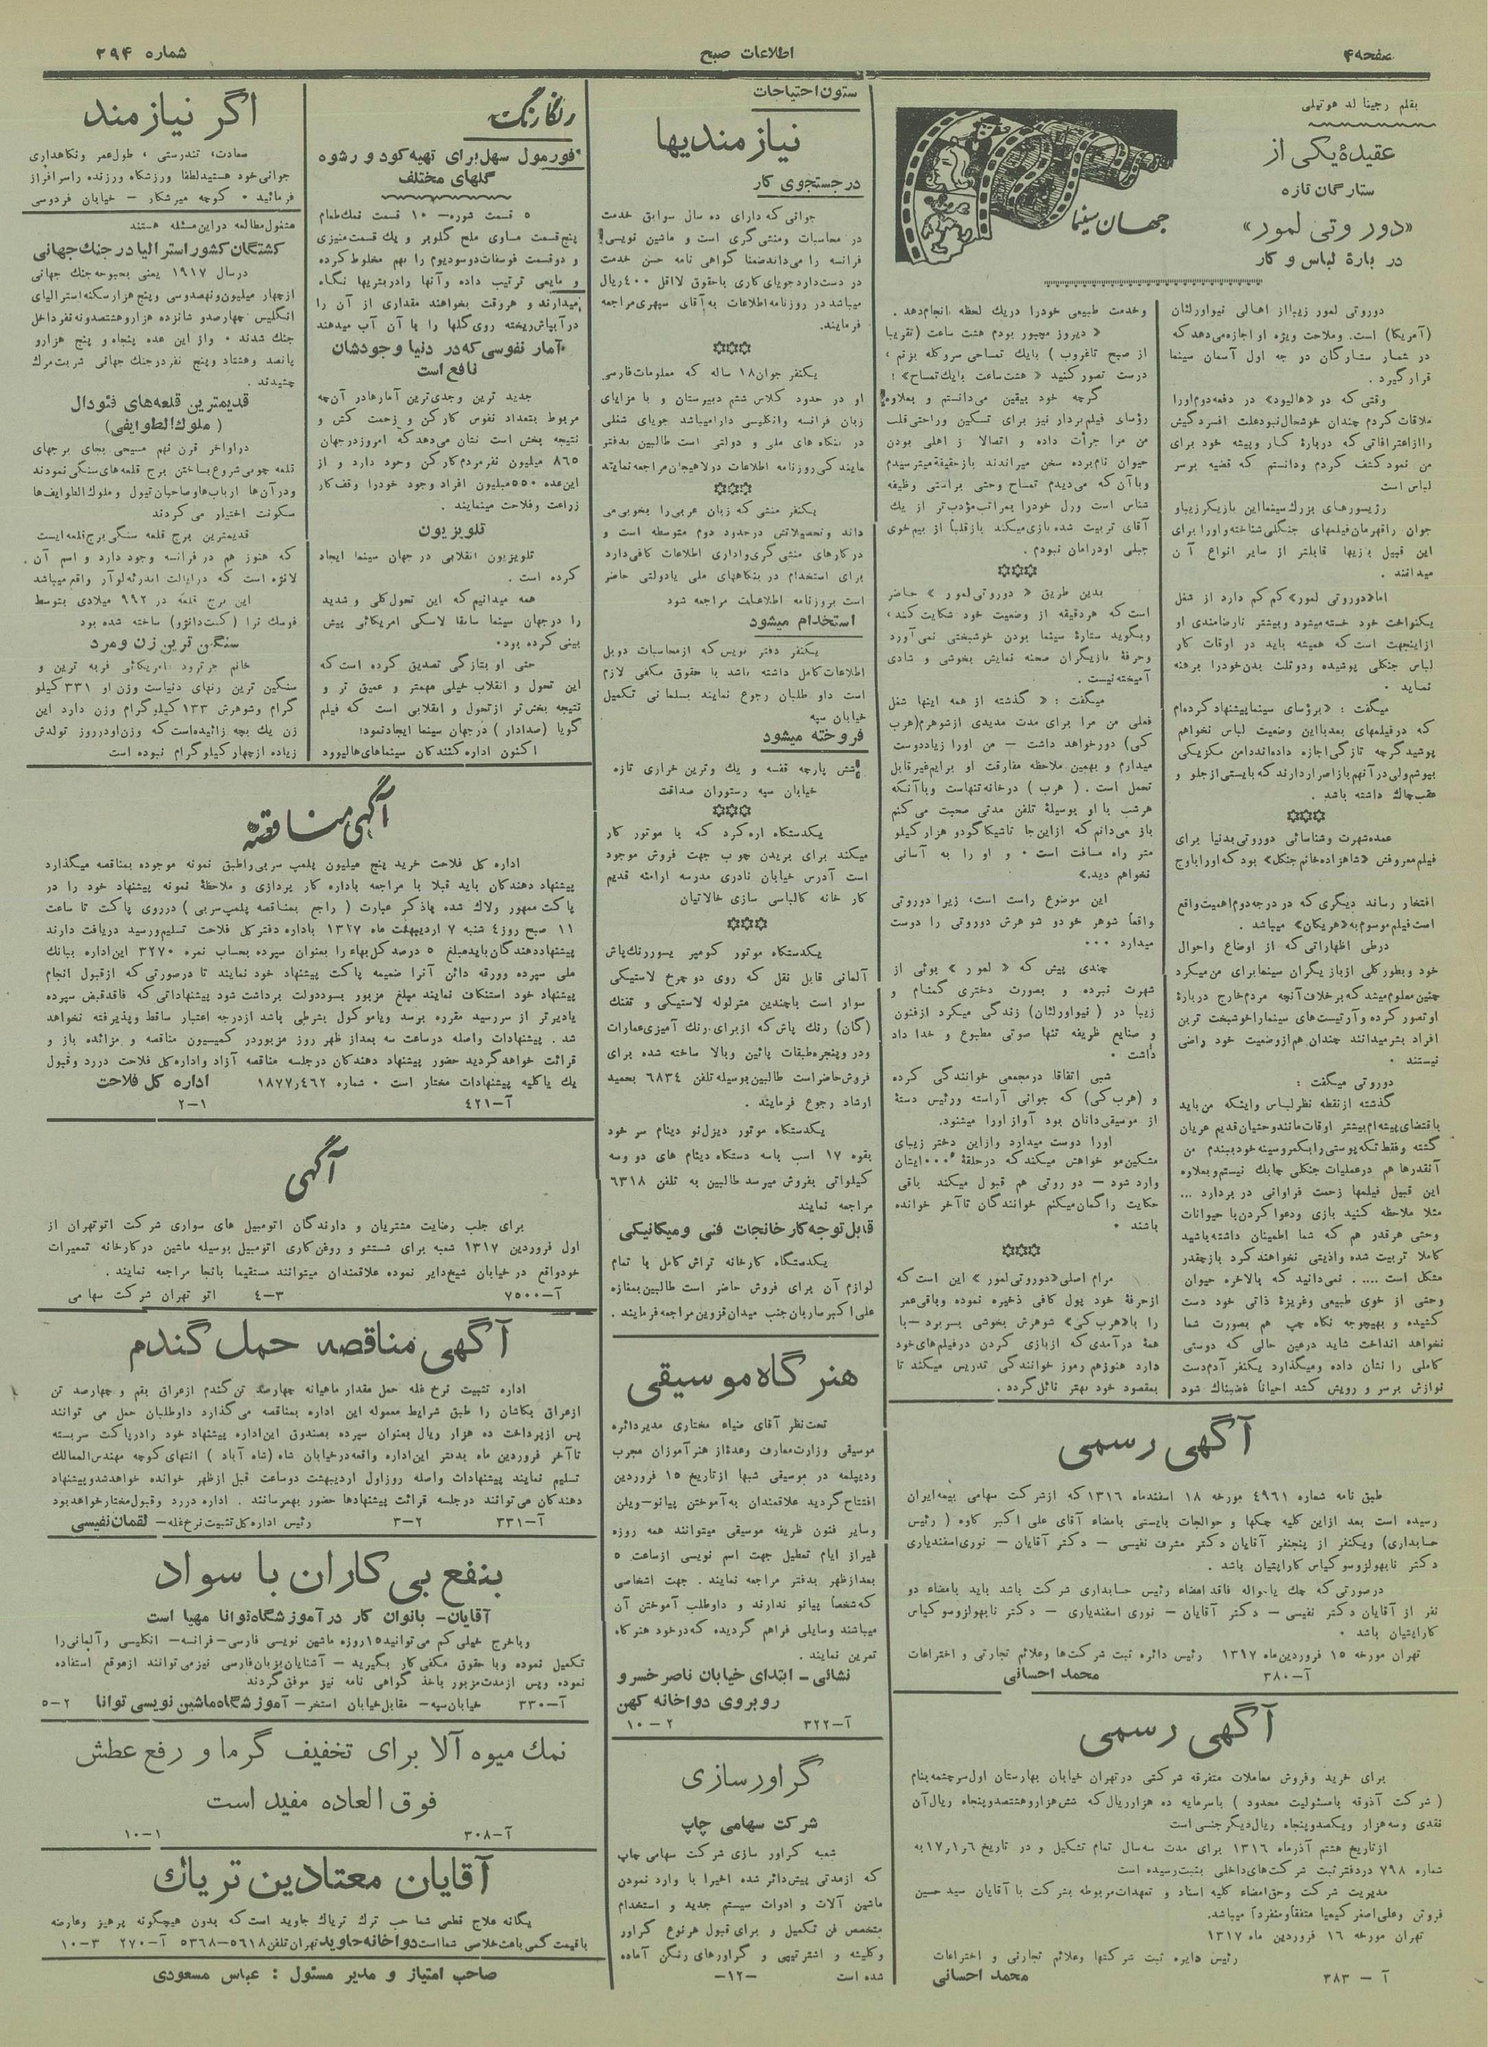 صفحه ۴
اطلاعات صبح
شماره ۲۹۴
بقلم رجینا لد هوتیلی
عقیدهٔ یکی از
ستارگان تازه
«دوروتی لمور»
در بارهٔ لباس و کار
جهان سینما
دوروتی لمور زیبا از اهالی نیواورلئان
(آمریکا) است. وملاحت ویژه او اجازه میدهد که
در شمار ستارگان درجه اول آسمان سینما
قرار گیرد.
وقتی که در «هالیود» در دفعه دوم اورا
ملاقات کردم چندان خوشحال نبود علت افسردگیش
را از اعترافاتی که درباره کار و پیشه خود برای
من نمود کشف کردم ودانستم که قضیه بر سر
لباس است
رژیسورهای بزرك سینما این بازیگر زیبا و
جوان را قهرمان فیلمهای جنگلی شناخته و اورا برای
این قبیل بازیها قابلتر از سایر انواع آن
میدانند.
اما «دوروتی لمور» کم کم دارد از شغل
یکنواخت خود خسته میشود وبیشتر نارضامندی او
از اینجهت است که همیشه باید در اوقات کار
لباس جنگلی پوشیده ودوثلث بدن خود را برهنه
نماید.
میگفت: «برؤسای سینما پیشنهاد کرده‌ام
که در فیلمهای بعد با این وضعیت لباس نخواهم
پوشید گرچه تازگی اجازه داده‌اند دامن مکزیکی
بپوشم ولی در آنهم باز اصرار دارند که بایستی از جلو و
عقب چاك داشته باشد.
عمده شهرت وشناسائی دوروتی بدنیا برای
فیلم معروفش «شاهزاده خانم جنگل» بود که اورا باوج
افتخار رساند دیگری که در درجه دوم اهمیت واقع
است فیلم موسوم به «هریکان» میباشد.
درطی اظهاراتی که از اوضاع واحوال
خود وبطور کلی از بازیگران سینما برای من میکرد
چنین معلوم میشد که برخلاف آنچه مردم خارج دربارهٔ
او تصور کرده و آرتیست‌های سینما را خوشبخت ترین
افراد بشر میدانند چندان هم از وضعیت خود راضی
نیستند.
دوروتی میگفت:
گذشته از نقطه نظر لباس واینکه من باید
باقتضای پیشه‌ام بیشتر اوقات مانند وحشیان قدیم عریان
گشته وفقط تکه پوستی را بکمر وسینه خود ببندم من
آنقدرها هم در عملیات جنگلی چابك نیستم و بعلاوه
این قبیل فیلمها زحمت فراوانی در بردارد ...
مثلا ملاحظه کنید بازی ودعوا کردن با حیوانات
وحشی هر قدر هم که شما اطمینان داشته باشید
کاملا تربیت شده واذیتی نخواهند کرد باز چقدر
مشکل است .... نمیدانید که بالاخره حیوان
وحشی از خوی طبیعی وغریزهٔ ذاتی خود دست
کشیده و بهیچوجه نگاه چپ هم بصورت شما
نخواهد انداخت شاید در عین حالی که دوستی
کاملی را نشان داده ومیگذارد یکنفر آدم دست
نوازش بر سر و رویش کشد احیاناً غضبناك شود
وخدمت طبیعی خودرا در یك لحظه انجام دهد.
«دیروز مجبور بودم هشت ساعت (تقریبا
از صبح تا غروب) با یك تمساحی سروکله بزنم،
درست تصور کنید «هشت ساعت با یك تمساح»!
گرچه خود بیقین میدانستم و بعلاوه
رؤسای فیلم بردار نیز برای تسکین وراحتی قلب
من مرا جرأت داده و اتصالا از اهلی بودن
حیوان نام برده سخن میراندند باز حقیقة میترسیدم
وبا آن که میدیدم تمساح وحشی براستی وظیفه
شناس است ورل خودرا بمراتب مؤدب‌تر از یك
آقای تربیت شده بازی میکند باز قلباً از بیم خوی
جبلی او در امان نبودم.
بدین طریق «دوروتی لمور» حاضر
است که هر دقیقه از وضعیت خود شکایت کند،
وبگوید ستارهٔ سینما بودن خوشبختی نمی آورد
وحرفهٔ بازیگران صحنه نمایش بخوشی و شادی
آمیخته نیست.
میگفت: «گذشته از همه اینها شغل
فعلی من مرا برای مدت مدیدی از شوهرم (هرب
کی) دور خواهد داشت — من اورا زیاد دوست
میدارم و بهمین ملاحظه مفارقت او برایم غیر قابل
تحمل است. (هرب) در خانه تنهاست وبا آنکه
هر شب با او بوسیلهٔ تلفن مدتی صحبت می کنم
باز می دانم که از این جا تا شیکاگو دو هزار کیلو
متر راه مسافت است. و او را به آسانی
نخواهم دید.»
این موضوع راست است، زیرا دوروتی
واقعاً شوهر خود و شوهرش دوروتی را دوست
میدارد ...
چندی پیش که «لمور» بوئی از
شهرت نبرده و بصورت دختری گمنام و
زیبا در (نیواورلئان) زندگی میکرد از فنون
و صنایع ظریفه تنها صوتی مطبوع و خدا داد
داشت.
شبی اتفاقا در مجمعی خوانندگی کرده
و (هرب کی) که جوانی آراسته ورئیس دستهٔ
از موسیقی دانان بود آواز اورا میشنود.
اورا دوست میدارد واز این دختر زیبای
مشکین مو خواهش میکند که در حلقهٔ ... ایشان
وارد شود — دوروتی هم قبول میکند باقی
حکایت را گمان میکنم خوانندگان تا آخر خوانده
باشند.
مرام اصلی «دوروتی لمور» این است که
از حرفهٔ خود پول کافی ذخیره نموده وباقی عمر
را با «هرب کی» شوهرش بخوشی بسر برد — با
همهٔ درآمدی که از بازی کردن در فیلم های خود
دارد هنوز هم رموز خوانندگی تدریس میکند تا
بمقصود خود بهتر نائل گردد.
آگهی رسمی
طبق نامه شماره ٤٩٦١ مورخه ١٨ اسفندماه ١٣١٦ که از شرکت سهامی بیمه ایران
رسیده است بعد از این کلیه چکها و حوالجات بایستی بامضاء آقای علی اکبر کاوه (رئیس
حسابداری) ویکنفر از پنجنفر آقایان دکتر مشرف نفیسی — دکتر آقایان — نوری اسفندیاری
دکتر نابهولز و سوکیاس کاراپتیان باشد.
در صورتی که چك یا حواله فاقد امضاء رئیس حسابداری شرکت باشد باید بامضاء دو
نفر از آقایان دکتر نفیسی — دکتر آقایان — نوری اسفندیاری — دکتر نابهولز وسوکیاس
کاراپتیان باشد.
تهران مورخه ١٥ فروردین ماه ١٣١٧ رئیس دائره ثبت شرکت‌ها وعلائم تجارتی و اختراعات
آ—٣٨٠ محمد احسانی
آگهی رسمی
برای خرید وفروش معاملات متفرقه شرکتی در تهران خیابان بهارستان اول سرچشمه بنام
(شرکت آذوقه با مسئولیت محدود) باسرمایه ده هزار ریال که شش هزار وهشتصد وپنجاه ریال آن
نقدی وسه هزار ویکصد وپنجاه ریال دیگر جنسی است
از تاریخ هشتم آذر ماه ١٣١٦ برای مدت سه سال تمام تشکیل و در تاریخ ١٧،١،٦ به
شماره ٧٩٨ در دفتر ثبت شرکت‌های داخلی بثبت رسیده است
مدیریت شرکت وحق امضاء کلیه اسناد و تعهدات مربوطه بشرکت با آقایان سید حسین
فروتن وعلی اصغر کیمیا متفقاً ومنفرداً میباشد.
تهران مورخه ١٦ فروردین ماه ١٣١٧
رئیس دایره ثبت شرکتها وعلائم تجارتی و اختراعات
آ — ٣٨٣ محمد احسانی
ستون احتیاجات
نیازمندیها
در جستجوی کار
جوانی که دارای ده سال سوابق خدمت
در محاسبات ومنشی گری است و ماشین نویسی
فرانسه را می‌داند ضمنا گواهی نامه حسن خدمت
در دست دارد جویای کاری باحقوق لااقل ٤٠٠ ریال
میباشد در روزنامه اطلاعات به آقای سپهری مراجعه
فرمایند.
یکنفر جوان ١٨ ساله که معلومات فارسی
او در حدود کلاس ششم دبیرستان و با مزایای
زبان فرانسه وانگلیسی دارا میباشد جویای شغلی
در بنگاه های ملی و دولتی است طالبین بدفتر
نمایندگی روزنامه اطلاعات در لاهیجان مراجعه نمایند
یکنفر منشی که زبان عربی را بخوبی می
داند وتحصیلاتش در حدود دوم متوسطه است و
در کارهای منشی گری واداری اطلاعات کافی دارد
برای استخدام در بنگاههای ملی یا دولتی حاضر
است بروزنامه اطلاعات مراجعه شود
استخدام میشود
یکنفر دفتر نویس که از محاسبات دوبل
اطلاعات کامل داشته باشد با حقوق مکفی لازم
است داوطلبان رجوع نمایند بسلمانی تکمیل
خیابان سپه
فروخته میشود
شش پارچه قفسه و یك ویترین خرازی تازه
خیابان سپه رستوران صداقت
یکدستگاه اره گرد که با موتور کار
میکند برای بریدن چوب جهت فروش موجود
است آدرس خیابان نادری مدرسه ارامنه قدیم
کار خانه کالباسی سازی خالاتیان
یکدستگاه موتور کومپرسور رنگ پاش
آلمانی قابل نقل که روی دو چرخ لاستیکی
سوار است باچندین متر لوله لاستیکی و تفنگ
(گان) رنگ پاش که از برای رنگ آمیزی عمارات
ودر وپنجره طبقات پائین وبالا ساخته شده برای
فروش حاضر است طالبین بوسیله تلفن ٦٨٣٤ بحمید
ارشاد رجوع فرمایند.
یکدستگاه موتور دیزل نو دینام سر خود
بقوه ١٧ اسب باسه دستگاه دینام های دو وسه
کیلواتی بفروش میرسد طالبین به تلفن ٦٣١٨
مراجعه نمایند
قابل توجه کارخانجات فنی ومیکانیکی
یکدستگاه کارخانه تراش کامل با تمام
لوازم آن برای فروش حاضر است طالبین بمغازه
علی اکبر ساربان جنب میدان قزوین مراجعه فرمایند.
هنرگاه موسیقی
تحت نظر آقای ضیاء مختاری مدیر دائره
موسیقی وزارت معارف وعدهٔ از هنر آموزان مجرب
ودیپلمه در موسیقی شبها از تاریخ ١٥ فروردین
افتتاح گردید علاقمندان به آموختن پیانو—ویلن
وسایر فنون ظریفه موسیقی میتوانند همه روزه
غیر از ایام تعطیل جهت اسم نویسی از ساعت ٥
بعد از ظهر بدفتر مراجعه نمایند. جهت اشخاصی
که شخصاً پیانو ندارند و داوطلب آموختن آن
میباشند وسایلی فراهم گردیده که در خود هنرگاه
تمرین نمایند.
نشانی — ابتدای خیابان ناصر خسرو
روبروی دواخانه کهن
آ—٣٢٢ ٢—١٠
گراورسازی
شرکت سهامی چاپ
شعبه گراور سازی شرکت سهامی چاپ
که از مدتی پیش دائر شده اخیرا با وارد نمودن
ماشین آلات و ادوات سیستم جدید و استخدام
متخصص فن تکمیل و برای قبول هر نوع گراور
وکلیشه و اشترتیپی و گراورهای رنگی آماده
شده است —١٢—
رنگارنگ
فورمول سهل برای تهیه کود و رشوه
گلهای مختلف
٥ قسمت شوره — ١٠ قسمت نمك طعام
پنج قسمت مساوی ملح گلوبر و یك قسمت منیزی
و دو قسمت فوسفات دوسودیوم را بهم مخلوط کرده
و مایعی ترتیب داده وآنها را در بطریها نگاه
میدارند و هروقت بخواهند مقداری از آن را
در آبپاش ریخته روی گلها را با آن آب میدهند
آمار نفوسی که در دنیا وجودشان
نافع است
جدید ترین وجدی‌ترین آمارها در آن چه
مربوط بتعداد نفوس کارکن و زحمت کش و
نتیجه بخش است نشان می‌دهد که امروز در جهان
٨٦٥ میلیون نفر مردم کارکن وجود دارد و از
این عده ٥٥٠ میلیون افراد وجود خودرا وقف کار
زراعت وفلاحت مینمایند.
تلویزیون
تلویزیون انقلابی در جهان سینما ایجاد
کرده است.
همه میدانیم که این تحول کلی و شدید
را در جهان سینما سابقا لاسکی امریکائی پیش
بینی کرده بود.
حتی او بتازگی تصدیق کرده است که
این تحول و انقلاب خیلی مهمتر و عمیق تر و
نتیجه بخش تر از تحول و انقلابی است که فیلم
گویا (صدادار) در جهان سینما ایجاد نمود؛
اکنون اداره کنندگان سینماهای هالیوود
مشغول مطالعه در این مسئله هستند
اگر نیازمند
سعادت، تندرستی، طول عمر ونگاهداری
جوانی خود هستید لطفا ورزشگاه ورزنده را سرافراز
فرمائید. کوچه میرشکار — خیابان فردوسی
کشتگان کشور استرالیا در جنگ جهانی
در سال ١٩١٧ یعنی بحبوحه جنگ جهانی
از چهار میلیون ونهصد وسی وپنج هزار سکنه استرالیای
انگلیس چهارصد و شانزده هزار وهشتصد ونه نفر داخل
جنگ شدند. واز این عده پنجاه و پنج هزار و
پانصد وهشتاد وپنج نفر در جنگ جهانی شربت مرگ
چشیدند.
قدیمترین قلعه‌های فئودال
(ملوك الطوایفی)
در اواخر قرن نهم مسیحی بجای برجهای
قلعه چوبی شروع بساختن برج قلعه‌های سنگی نمودند
ودر آن‌ها ارباب‌ها وصاحبان تیول و ملوك الطوایف‌ها
سکونت اختیار می کردند
قدیمترین برج قلعه سنگی برج قلعه ایست
که هنوز هم در فرانسه وجود دارد و اسم آن.
لانژه است که در ایالت اندر ئه لوآر واقع میباشد
این برج قلعه در ٩٩٢ میلادی بتوسط
فوسك نرا (کنت دانژو) ساخته شده بود
سنگین ترین زن ومرد
خانم جرترود امریکائی فربه ترین و
سنگین ترین زنهای دنیاست وزن او ٣٣١ کیلو
گرام وشوهرش ١٣٣ کیلو گرام وزن دارد این
زن یك بچه زائیده است که وزن او در روز تولدش
زیاده از چهار کیلو گرام نبوده است
آگهی مناقصه
اداره کل فلاحت خرید پنج میلیون پلمپ سربی را طبق نمونه موجوده بمناقصه میگذارد
پیشنهاد دهندگان باید قبلا با مراجعه باداره کار پردازی و ملاحظهٔ نمونه پیشنهاد خود را در
پاکت ممهور ولاك شده باذکر عبارت (راجع بمناقصه پلمپ سربی) در روی پاکت تا ساعت
١١ صبح روز ٤ شنبه ٧ اردیبهشت ماه ١٣١٧ باداره دفتر کل فلاحت تسلیم ورسید دریافت دارند
پیشنهاد دهندگان باید مبلغ ٥ درصد کل بهاء را بعنوان سپرده بحساب نمره ٣٢٧٠ این اداره ببانك
ملی سپرده وورقه دائن آنرا ضمیمه پاکت پیشنهاد خود نمایند تا در صورتی که از قبول انجام
پیشنهاد خود استنکاف نمایند مبلغ مزبور بسود دولت برداشت شود پیشنهاداتی که فاقد قبض سپرده
یا دیرتر از سر رسید مقرره برسد ویا موکول بشرطی باشد از درجه اعتبار ساقط وپذیرفته نخواهد
شد. پیشنهادات واصله در ساعت سه بعد از ظهر روز مزبور در کمیسیون مناقصه و مزائده باز و
قرائت خواهد گردید حضور پیشنهاد دهندگان در جلسه مناقصه آزاد واداره کل فلاحت در رد وقبول
یك یا کلیه پیشنهادات مختار است. شماره ١٨٧٧،٤٦٢ اداره کل فلاحت
آ—٤٢١ ١—٢
آگهی
برای جلب رضایت مشتریان و دارندگان اتومبیل های سواری شرکت اتو تهران از
اول فروردین ١٣١٧ شعبه برای شستشو و روغن کاری اتومبیل بوسیله ماشین در کارخانه تعمیرات
خود واقع در خیابان شیخ دایر نموده علاقمندان میتوانند مستقیما بآنجا مراجعه نمایند.
آ—٧٥٠٠ ٣—٤ اتو تهران شرکت سهامی
آگهی مناقصه حمل گندم
اداره تثبیت نرخ غله حمل مقدار ماهیانه چهارصد تن گندم از عراق بقم و چهارصد تن
از عراق بکاشان را طبق شرایط معموله این اداره بمناقصه می گذارد داوطلبان حمل می توانند
پس از پرداخت ده هزار ریال بعنوان سپرده بصندوق این اداره پیشنهاد خود را در پاکت سربسته
تا آخر فروردین ماه بدفتر این اداره واقعه در خیابان شاه (شاه آباد) انتهای کوچه مهندس الممالك
تسلیم نمایند پیشنهادات واصله روز اول اردیبهشت دو ساعت قبل از ظهر خوانده خواهد شد و پیشنهاد
دهندگان می توانند در جلسه قرائت پیشنهادها حضور بهم رسانند. اداره در رد وقبول مختار خواهد بود
آ—٣٣١ ٢—٣ رئیس اداره کل تثبیت نرخ غله — لقمان نفیسی
بنفع بی کاران با سواد
آقایان — بانوان کار در آموزشگاه توانا مهیا است
وباخرج خیلی کم می توانید ١٥ روزه ماشین نویسی فارسی — فرانسه — انگلیسی وآلمانی را
تکمیل نموده وبا حقوق مکفی کار بگیرید — آشنایان بزبان فارسی نیز می توانند از موقع استفاده
نموده وپس از مدت مزبور باخذ گواهی نامه نیز موفق گردند
آ—٣٣٠ خیابان سپه — مقابل خیابان استخر — آموزشگاه ماشین نویسی توانا ٢—٥
نمك میوه آلا برای تخفیف گرما و رفع عطش
فوق العاده مفید است
آ—٣٠٨ ١—١٠
آقایان معتادین تریاك
یگانه علاج قطعی شما حب ترك تریاك جاوید است که بدون هیچگونه پرهیز وعارضه
با قیمت کمی باعث خلاصی شماست دواخانه جاوید تهران تلفن ٥٦١٨—٥٣٦٨ آ—٢٧٠ ٣—١٠
صاحب امتیاز و مدیر مسئول: عباس مسعودی